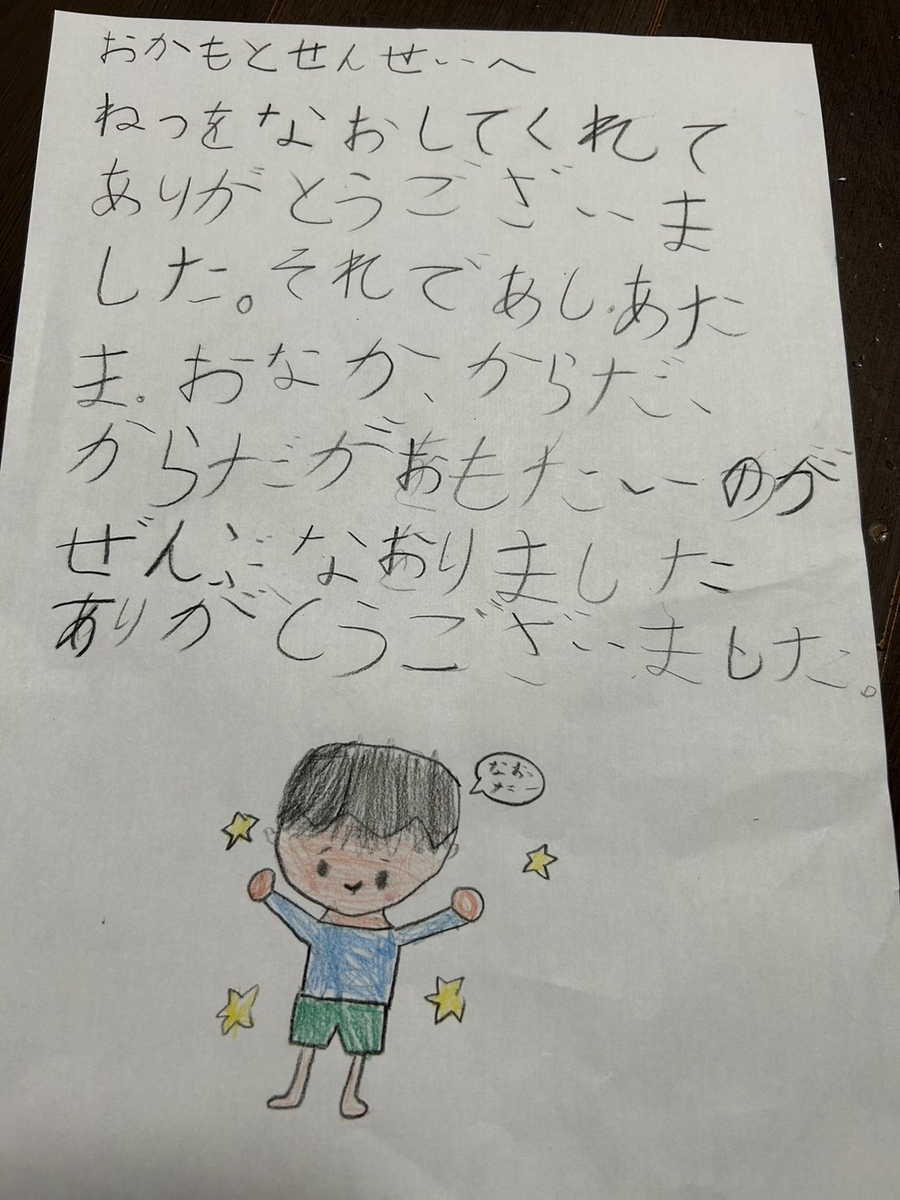 おかもとせんせいへ
ねつをなおしてくれて
ありがとうございま
した。それであし、あた
ま、おなか、からだ、
からだがおもたいのが
ぜんぶなおりました
ありがとうございました。
なおっ
たー